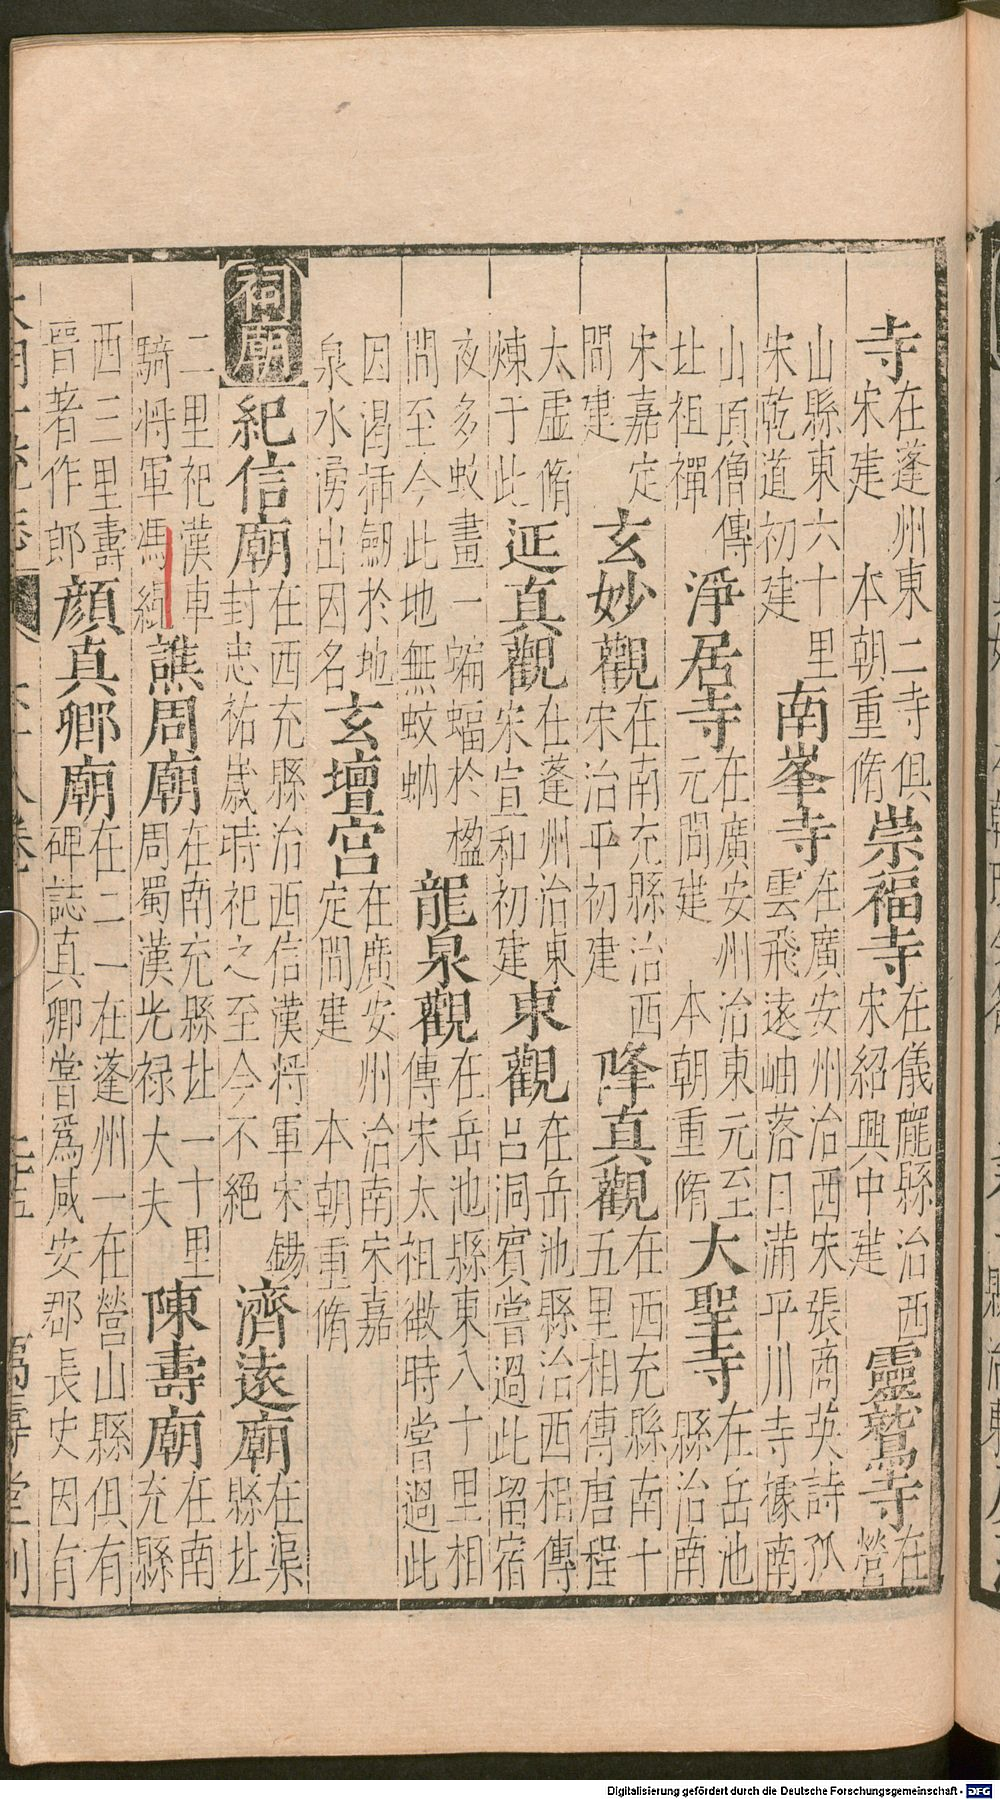 寺在蓬州東二寺俱宋建　本朝重脩崇福寺在儀隴縣治西宋紹興中建靈鷲寺在營
山縣東六十里宋乾道初建南峯寺在廣安州治西宋張商英詩孤雲飛遠岫落日滿平川寺據南
山頂僧傳北祖禪淨居寺在廣安州治東元至元間建　本朝重脩大聖寺在岳池縣治南
宋嘉定間建玄妙觀在南充縣治西宋治平初建降真觀在西充縣南十五里相傳唐程
太虛脩煉于此延真觀在蓬州治東宋宣和初建東觀在岳池縣治西相傳呂洞賓嘗過此留宿
夜多蚊畫一蝙蝠於楹間至今此地無蚊蚋龍泉觀在岳池縣東八十里相傳宋太祖微時嘗過此
因渴揷劒於地泉水湧出因名玄壇宮在廣安州治南宋嘉定間建　本朝重脩
祠廟紀信廟在西充縣治西信漢將軍宋錫封忠祐歲時祀之至今不絕濟遠廟在渠縣北
二里祀漢車騎將軍馮緄譙周廟在南充縣北一十里周蜀漢光禄大夫陳壽廟在南充縣
西三里壽晉著作郎顔真卿廟在二一在蓬州一在營山縣俱有碑誌真卿嘗爲咸安郡長史因有
萬壽堂刊
Digitalisierung gefördert durch die Deutsche Forschungsgemeinschaft - DFG